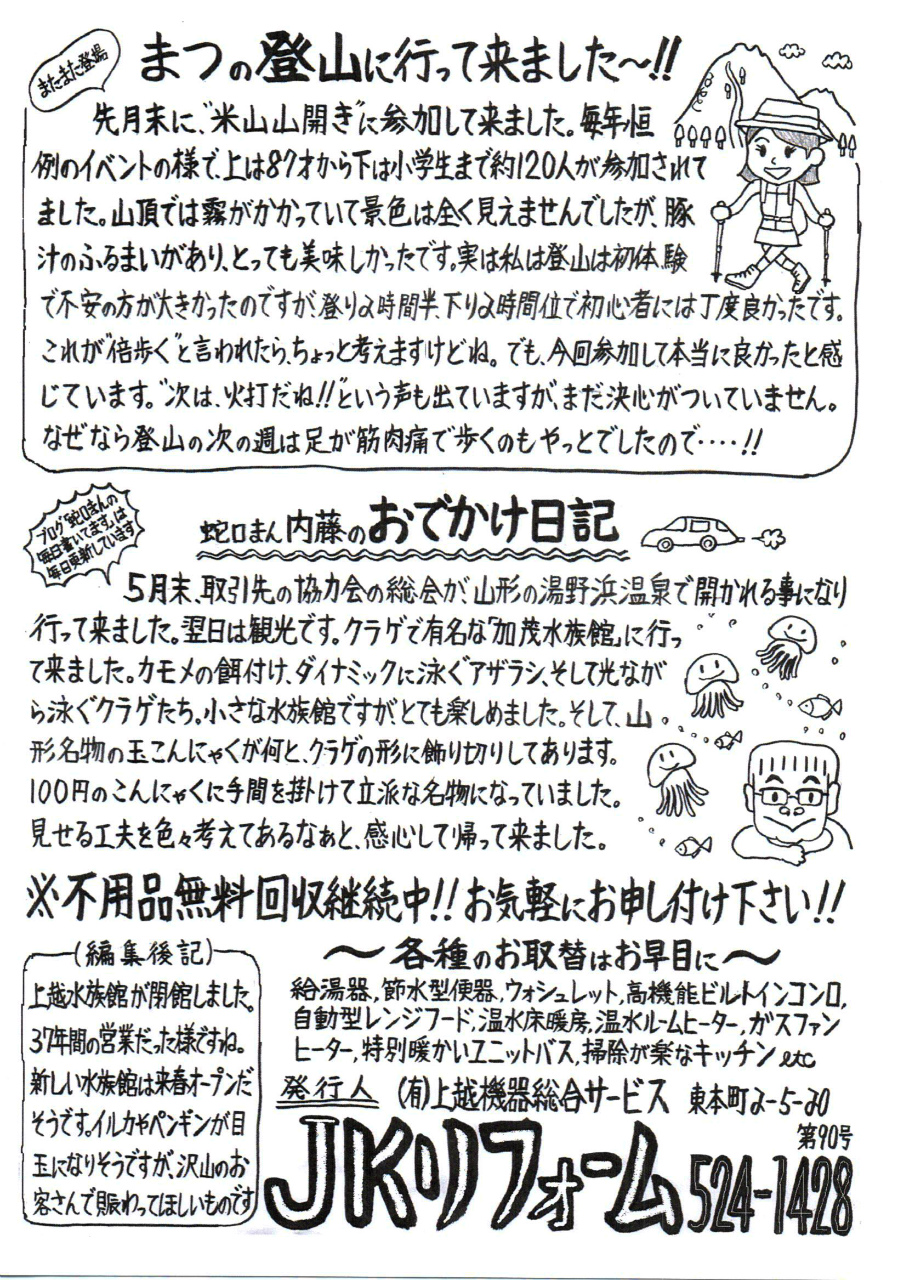 またまた登場
まつの登山に行って来ました〜!!
先月末に、"米山山開き"に参加して来ました。毎年恒
例のイベントの様で、上は87才から下は小学生まで約120人が参加されて
ました。山頂では霧がかかっていて景色は全く見えませんでしたが、豚
汁のふるまいがあり、とっても美味しかったです。実は私は登山は初体験
で不安の方が大きかったのですが、登り2時間半、下り2時間位で初心者には丁度良かったです。
これが"倍歩く"と言われたら、ちょっと考えますけどね。でも、今回参加して本当に良かったと感
じています。"次は、火打だね!!"という声も出ていますが、まだ決心がついていません。
なぜなら登山の次の週は足が筋肉痛で歩くのもやっとでしたので‥‥!!
ブログ「蛇口まんの
毎日書いてます」は
毎日更新しています
蛇口まん内藤のおでかけ日記
5月末、取引先の協力会の総会が、山形の湯野浜温泉で開かれる事になり
行って来ました。翌日は観光です。クラゲで有名な「加茂水族館」に行っ
て来ました。カモメの餌付け、ダイナミックに泳ぐアザラシ、そして光なが
ら泳ぐクラゲたち。小さな水族館ですがとても楽しめました。そして、山
形名物の玉こんにゃくが何と、クラゲの形に飾り切りしてあります。
100円のこんにゃくに手間を掛けて立派な名物になっていました。
見せる工夫を色々考えてあるなぁと、感心して帰って来ました。
※不用品無料回収継続中!!お気軽にお申し付け下さい!!
(編集後記)
上越水族館が閉館しました。
37年間の営業だった様ですね。
新しい水族館は来春オープンだ
そうです。イルカやペンギンが目
玉になりそうですが、沢山のお
客さんで賑わってほしいものです
〜各種のお取替はお早目に〜
給湯器,節水型便器,ウォシュレット,高機能ビルトインコンロ,
自動型レンジフード,温水床暖房,温水ルームヒーター,ガスファン
ヒーター,特別暖かいユニットバス,掃除が楽なキッチン etc
発行人 (有)上越機器総合サービス 東本町2-5-20
第90号
JKリフォーム 524-1428